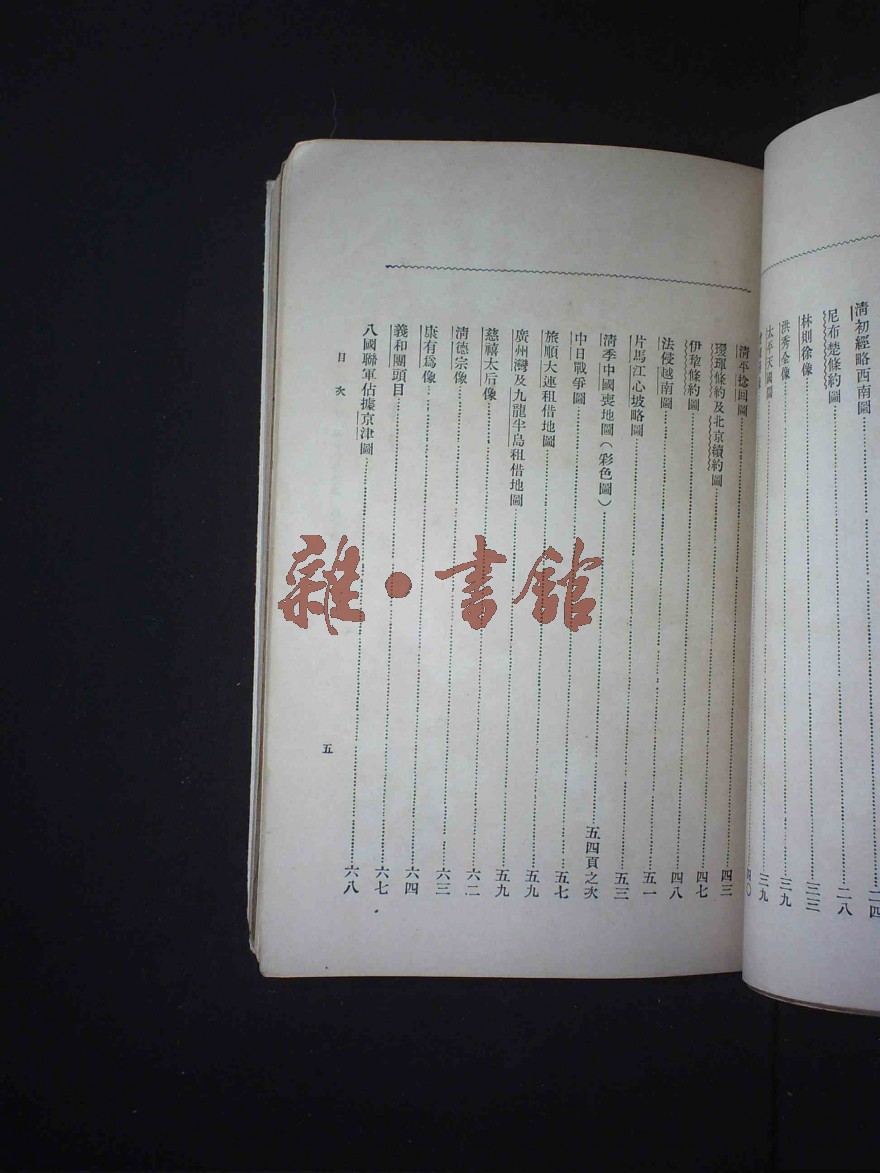 清初經略西南圖……二四
尼布楚條約圖……二八
林則徐像……三三
洪秀全像……三九
太平天國圖……三九
四〇
清平捻回圖……四三
璦琿條約及北京續約圖……四七
伊犂條約圖……四八
法侵越南圖……五一
片馬江心坡略圖……五三
清季中國喪地圖（彩色圖）……五四頁之次
中日戰爭圖……五七
旅順大連租借地圖……五九
廣州灣及九龍半島租借地圖……五九
慈禧太后像……六二
清德宗像……六三
康有爲像……六四
義和團頭目……六七
八國聯軍佔據京津圖……六八
目次
五
雜·書館